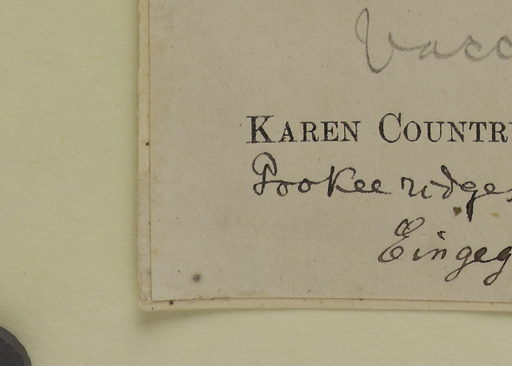 Vacc
KAREN COUNTR
Pookee ridges
Eingeg